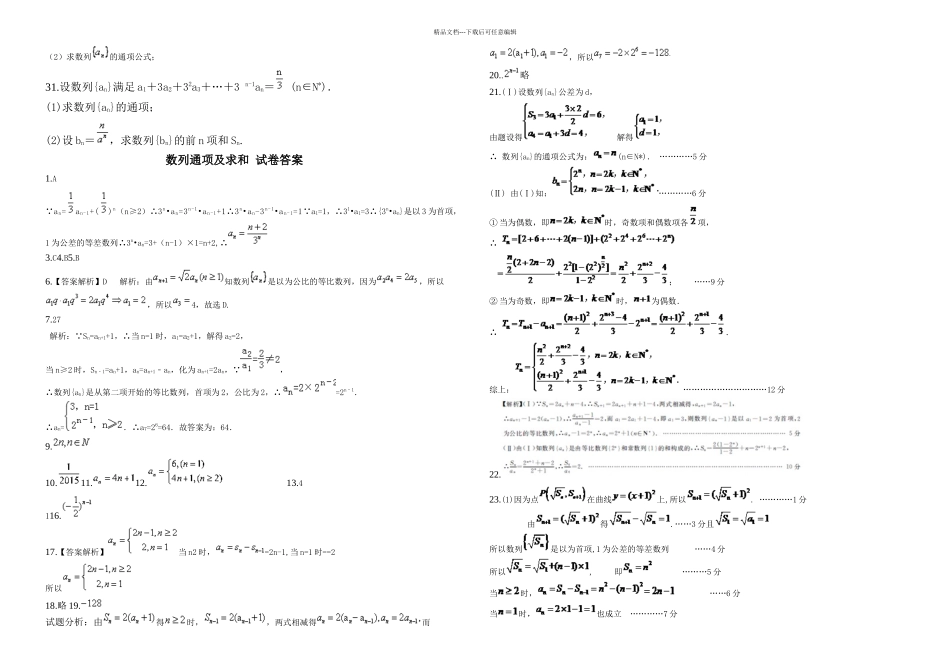 精品文档---下载后可任意编辑
（2）求数列{aₙ}的通项公式;
31.设数列{aₙ}满足 a₁＋3a₂＋3²a₃＋…＋3 ⁿ⁻¹aₙ＝n/3 (n∈N*).
(1)求数列{aₙ}的通项;
(2)设 bₙ＝n/aⁿ,求数列{bₙ}的前 n 项和 Sₙ.
数列通项及求和 试卷答案
1.A
∵aₙ=1/3 aₙ₋₁+(1/3)ⁿ（n≥2）∴3ⁿ•aₙ=3ⁿ⁻¹•aₙ₋₁+1∴3ⁿ•aₙ-3ⁿ⁻¹•aₙ₋₁=1∵a₁=1, ∴3¹•a₁=3∴{3ⁿ•aₙ}是以 3 为首项,
1 为公差的等差数列∴3ⁿ•aₙ=3+（n-1）×1=n+2, ∴aₙ=(n+2)/3ⁿ
3.C4.B5.B
6.【答案解析】D 解析：由aₙ₊₁=√2aₙ(n≥1)知数列{aₙ}是以为公比的等比数列，因为a₂a₄=2a₅, 所以
a₁q·a₁q³=2a₁q⁴⇒a₁=2, 所以a₃= 4，故选 D.
7.27
解析：∵Sₙ=aₙ₊₁+1, ∴当 n=1 时，a₁=a₂+1，解得 a₂=2,
当 n≥2 时，Sₙ₋₁=aₙ+1，aₙ=aₙ₊₁﹣aₙ，化为 aₙ₊₁=2aₙ，∵a₂/a₁=2/3≠2,
∴数列{aₙ}是从第二项开始的等比数列，首项为 2，公比为 2，∴aₙ=2×2ⁿ⁻²=2ⁿ⁻¹.
∴aₙ={3, n=1; 2ⁿ⁻¹, n≥2. ∴a₇=2⁶=64. 故答案为：64.
9.2n,n∈N
10.1/2015 11.aₙ=4n+1 12.aₙ={6,(n=1); 4n+1,(n≥2) 13.4
116.(-1/2)ⁿ⁻¹
17.【答案解析】aₙ={2n-1,n≥2; 2,n=1 当 n2 时，aₙ=sₙ-sₙ₋₁=2n-1,当 n=1 时==2
所以aₙ={2n-1,n≥2; 2,n=1
18.略 19.-128
试题分析：由Sₙ=2(aₙ+1)得n≥2时，Sₙ₋₁=2(aₙ₋₁+1), 两式相减得aₙ=2(aₙ-aₙ₋₁),aₙ=2aₙ₋₁,而
a₁=2(a₁+1),a₁=-2, 所以a₇=-2×2⁶=-128.
20..2ⁿ⁻¹略
21.(Ⅰ)设数列{aₙ}公差为 d,
由题设得{S₃=3a₁+(3×2/2)d=6, a₄=a₁+3d=4, 解得{a₁=1, d=1,
∴ 数列{aₙ}的通项公式为：aₙ=n(n∈N*). …………5 分
(Ⅱ) 由(Ⅰ)知：bₙ={2ⁿ, n=2k, k∈N*, 2n, n=2k-1, k∈N*. …………6 分
① 当为偶数，即n=2k, k∈N*时，奇数项和偶数项各n/2项,
∴ Tₙ=[2+6+⋯+2(n-1)]+(2²+2⁴+2⁶⋯+2ⁿ)
=(n/2)(2+2n-2)/2+2²[1-(2²)^(n/2)]/(1-2²)=n²/2+2ⁿ⁺²/3-4/3; ……9 分
② 当为奇数，即n=2k-1, k∈N*时，n+1为偶数.
∴ Tₙ=Tₙ₊₁-aₙ₊₁=(n+1)²/2+2ⁿ⁺³/3-4/3-2ⁿ⁺¹=(n+1)²/2+2ⁿ⁺¹/3-4/3.
综上：Tₙ={n²/2+2ⁿ⁺²/3-4/3, n=2k, k∈N*, (n+1)²/2+2ⁿ⁺¹/3-4/3, n=2k-1, k∈N*. …………………………12 分
【解析】(Ⅰ)∵Sₙ=2aₙ+n-4, ∴Sₙ₊₁=2aₙ₊₁+n+1-4, 两式相减得, aₙ₊₁=2aₙ-1,
∴aₙ₊₁-1=2(aₙ-1), ∴(aₙ₊₁-1)/(aₙ-1)=2, 而 a₁=2a₁+1-4, 即 a₁=3, 则数列{aₙ-1}是以 a₁-1=2 为首项, 2
为公比的等比数列, ∴aₙ-1=2ⁿ, ∴aₙ=2ⁿ+1(n∈N*). 5 分
(Ⅱ)由(Ⅰ)知数列{aₙ}是由等比数列{2ⁿ}和常数列{1}的和构成的, ∴Sₙ=2(1-2ⁿ)/(1-2)+n=2ⁿ⁺¹+n-2,
10 分
22.
23.(1)因为点P(√Sₙ,Sₙ₊₁)在曲线y=(x+1)²上,所以Sₙ₊₁=(√Sₙ+1)². …………1 分
由Sₙ₊₁=(√Sₙ+1)²得√Sₙ₊₁-√Sₙ=1.……3 分且√S₁=√a₁=1
所以数列{√Sₙ}是以为首项,1 为公差的等差数列 ……4 分
所以√Sₙ=√S₁+(n-1)×1, 即Sₙ=n² ………5 分
当n≥2时，aₙ=Sₙ-Sₙ₋₁=n²-(n-1)²=2n-1 ……6 分
当n=1时，aₙ=2×1-1=1也成立 …………7 分